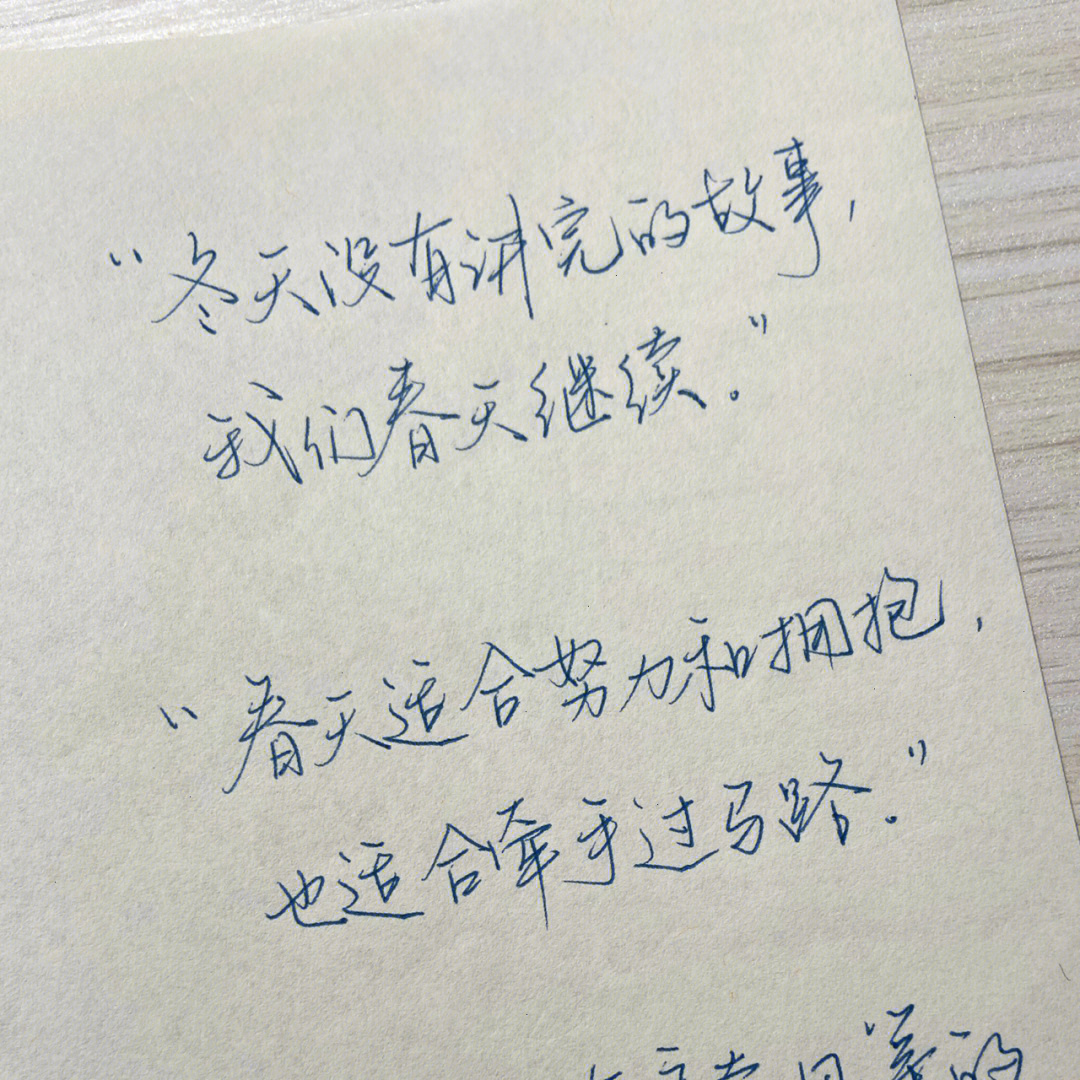 “冬天没有讲完的故事,
我们春天继续。”
“春天适合努力和拥抱,
也适合牵手过马路。”
的